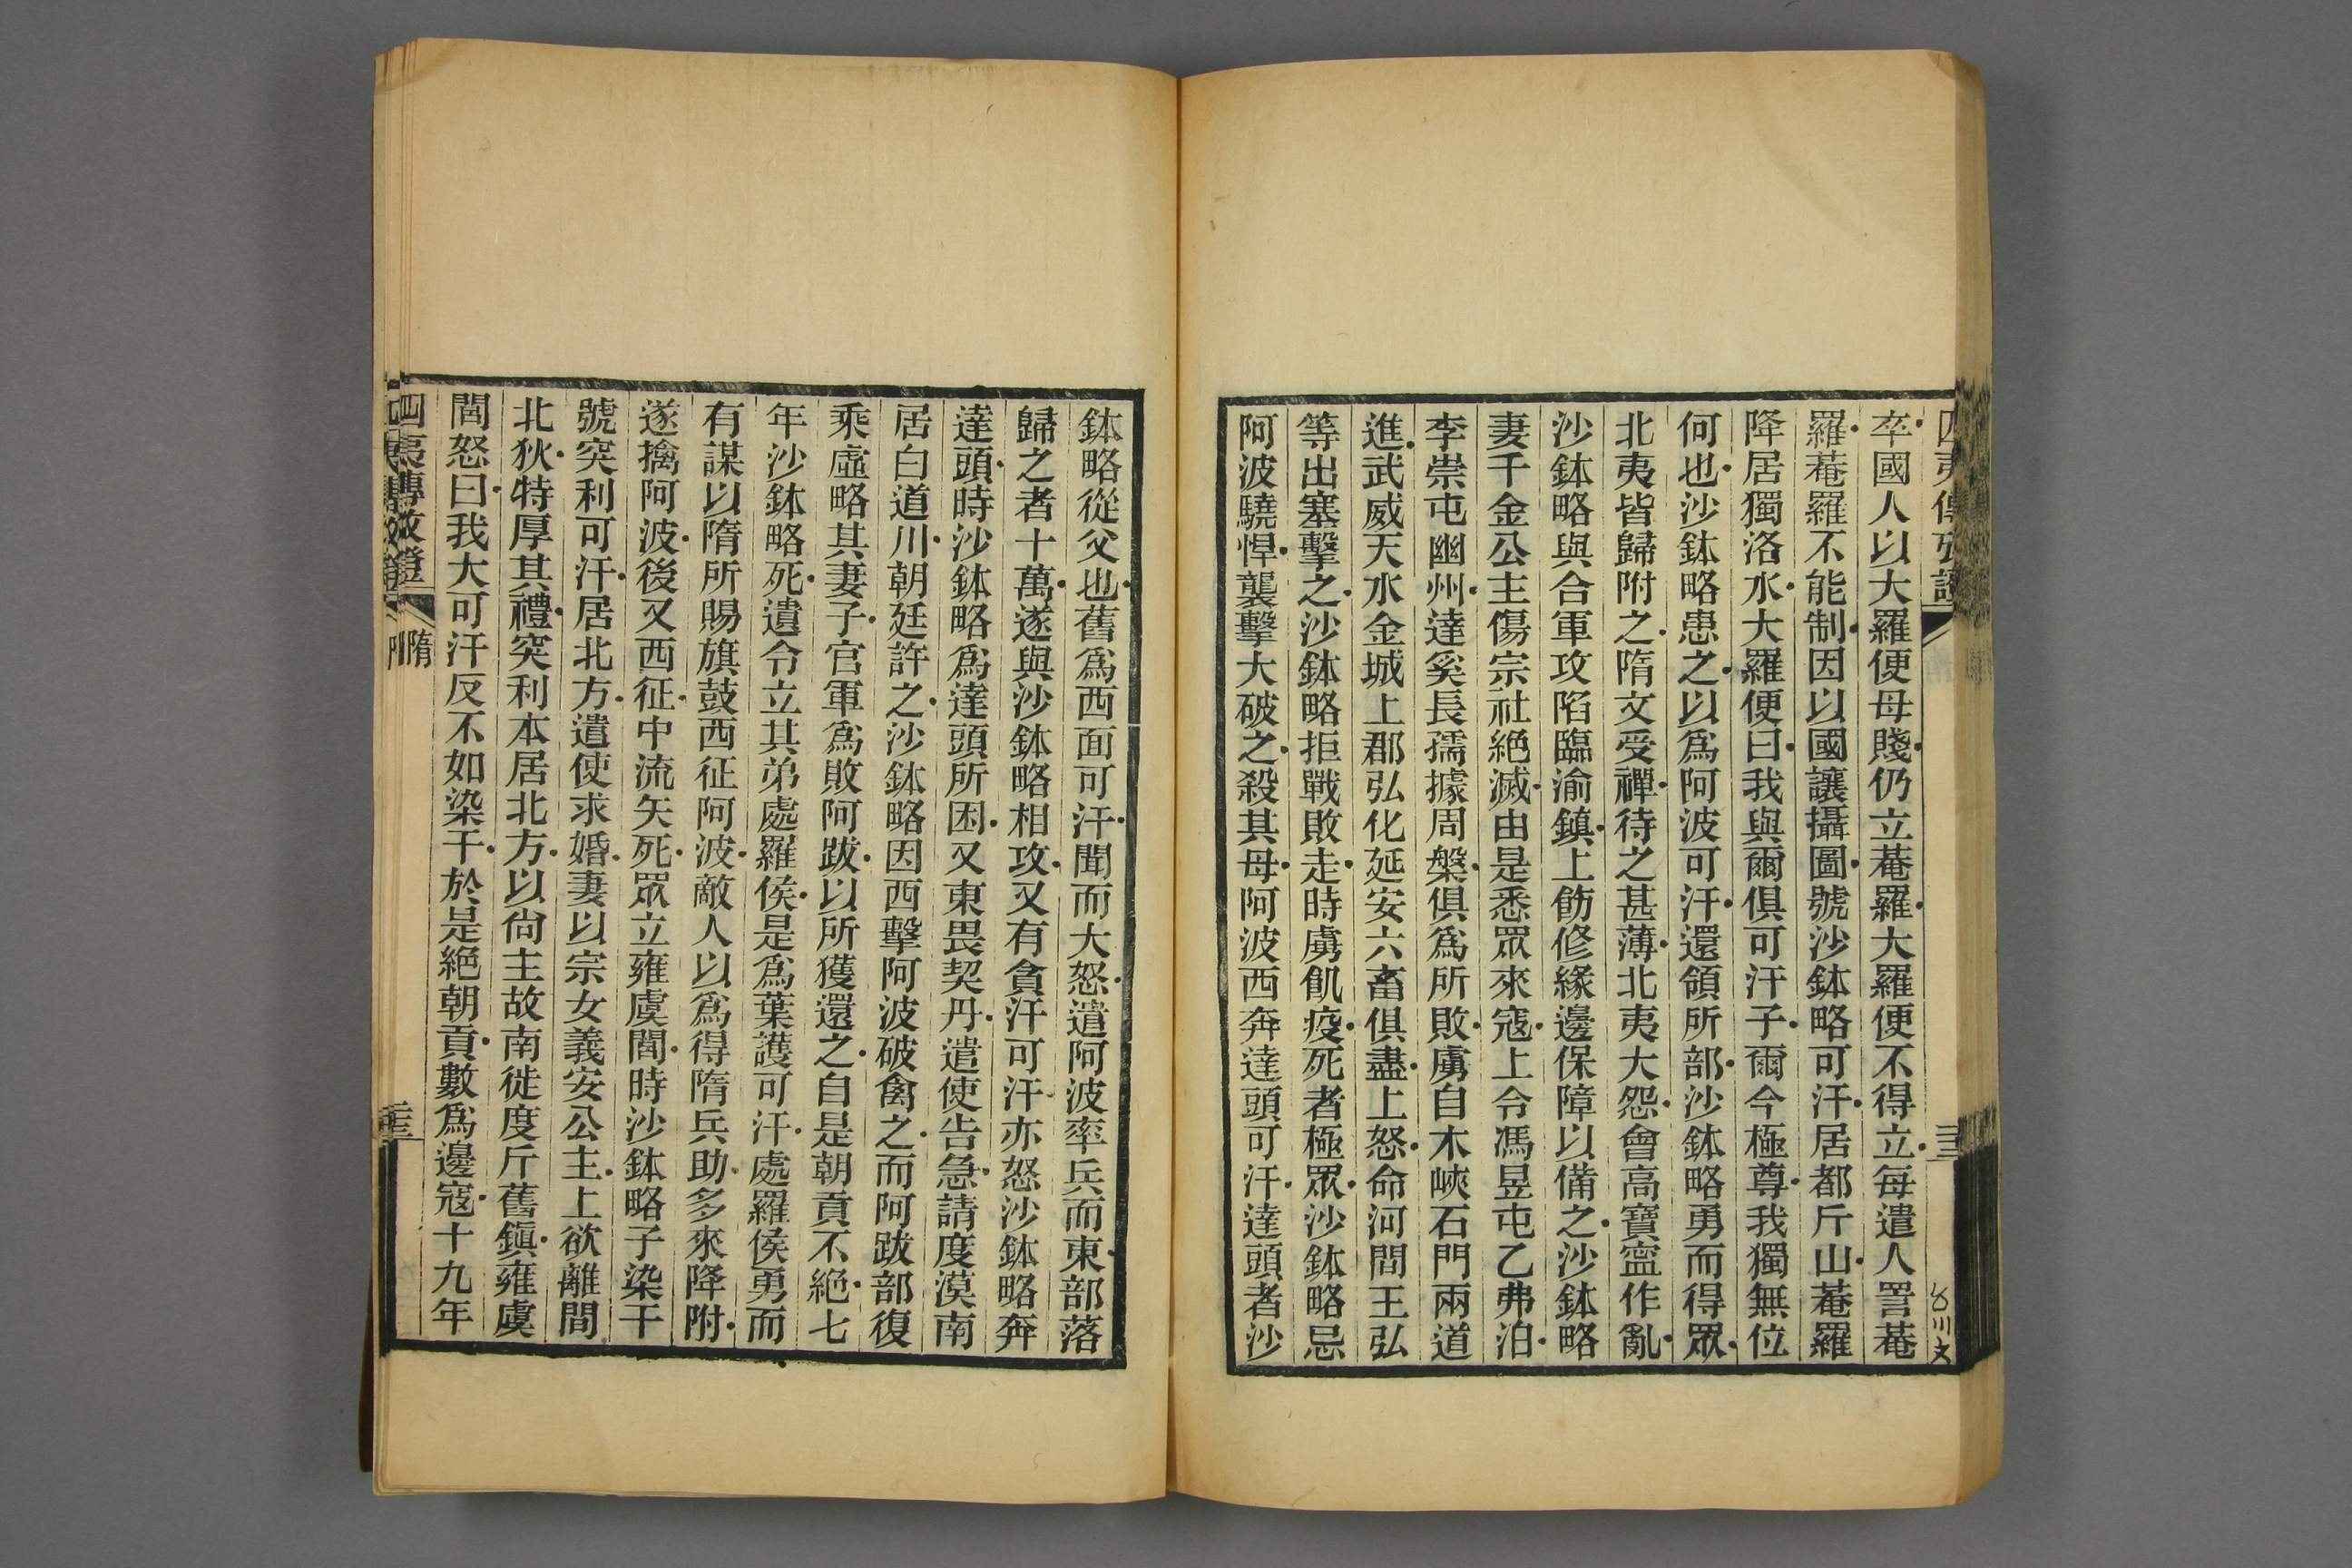 卒國人以大羅便母賤仍立菴羅大羅便不得立每遣人詈菴
羅菴羅不能制因以國讓攝圖號沙鉢略可汗居都斤山菴羅
降居獨洛水大羅便曰我與爾俱可汗子爾今極尊我獨無位
何也沙鉢略患之以爲阿波可汗還領所部沙鉢略勇而得眾
北夷皆歸附之隋文受禪待之甚薄北夷大怨會高寶寧作亂
沙鉢略與合軍攻陷臨渝鎮上飭修緣邊保障以備之沙鉢略
妻千金公主傷宗社絕滅由是悉眾來寇上令馮昱屯乙弗泊
李崇屯幽州達奚長孺據周槃俱爲所敗虜自木峽石門兩道
進武威天水金城上郡弘化延安六畜俱盡上怒命河間王弘
等出塞擊之沙鉢略拒戰敗走時虜飢疫死者極眾沙鉢略忌
阿波驍悍襲擊大破之殺其母阿波西奔達頭可汗達頭者沙
鉢略從父也舊爲西面可汗聞而大怒遣阿波率兵而東部落
歸之者十萬遂與沙鉢略相攻又有貪汗可汗亦怒沙鉢略奔
達頭時沙鉢略爲達頭所困又東畏契丹遣使告急請度漠南
居白道川朝廷許之沙鉢略因西擊阿波破禽之而阿跋部復
乘虛略其妻子官軍爲敗阿跋以所獲還之自是朝貢不絕七
年沙鉢略死遺令立其弟處羅侯是爲葉護可汗處羅侯勇而
有謀以隋所賜旗鼓西征阿波敵人以爲得隋兵助多來降附
遂擒阿波後又西征中流矢死眾立雍虞閭時沙鉢略子染干
號突利可汗居北方遣使求婚妻以宗女義安公主上欲離間
北狄特厚其禮突利本居北方以尙主故南徙度斤舊鎭雍虞
閭怒曰我大可汗反不如染干於是絕朝貢數爲邊寇十九年
四夷傳攷證
隋